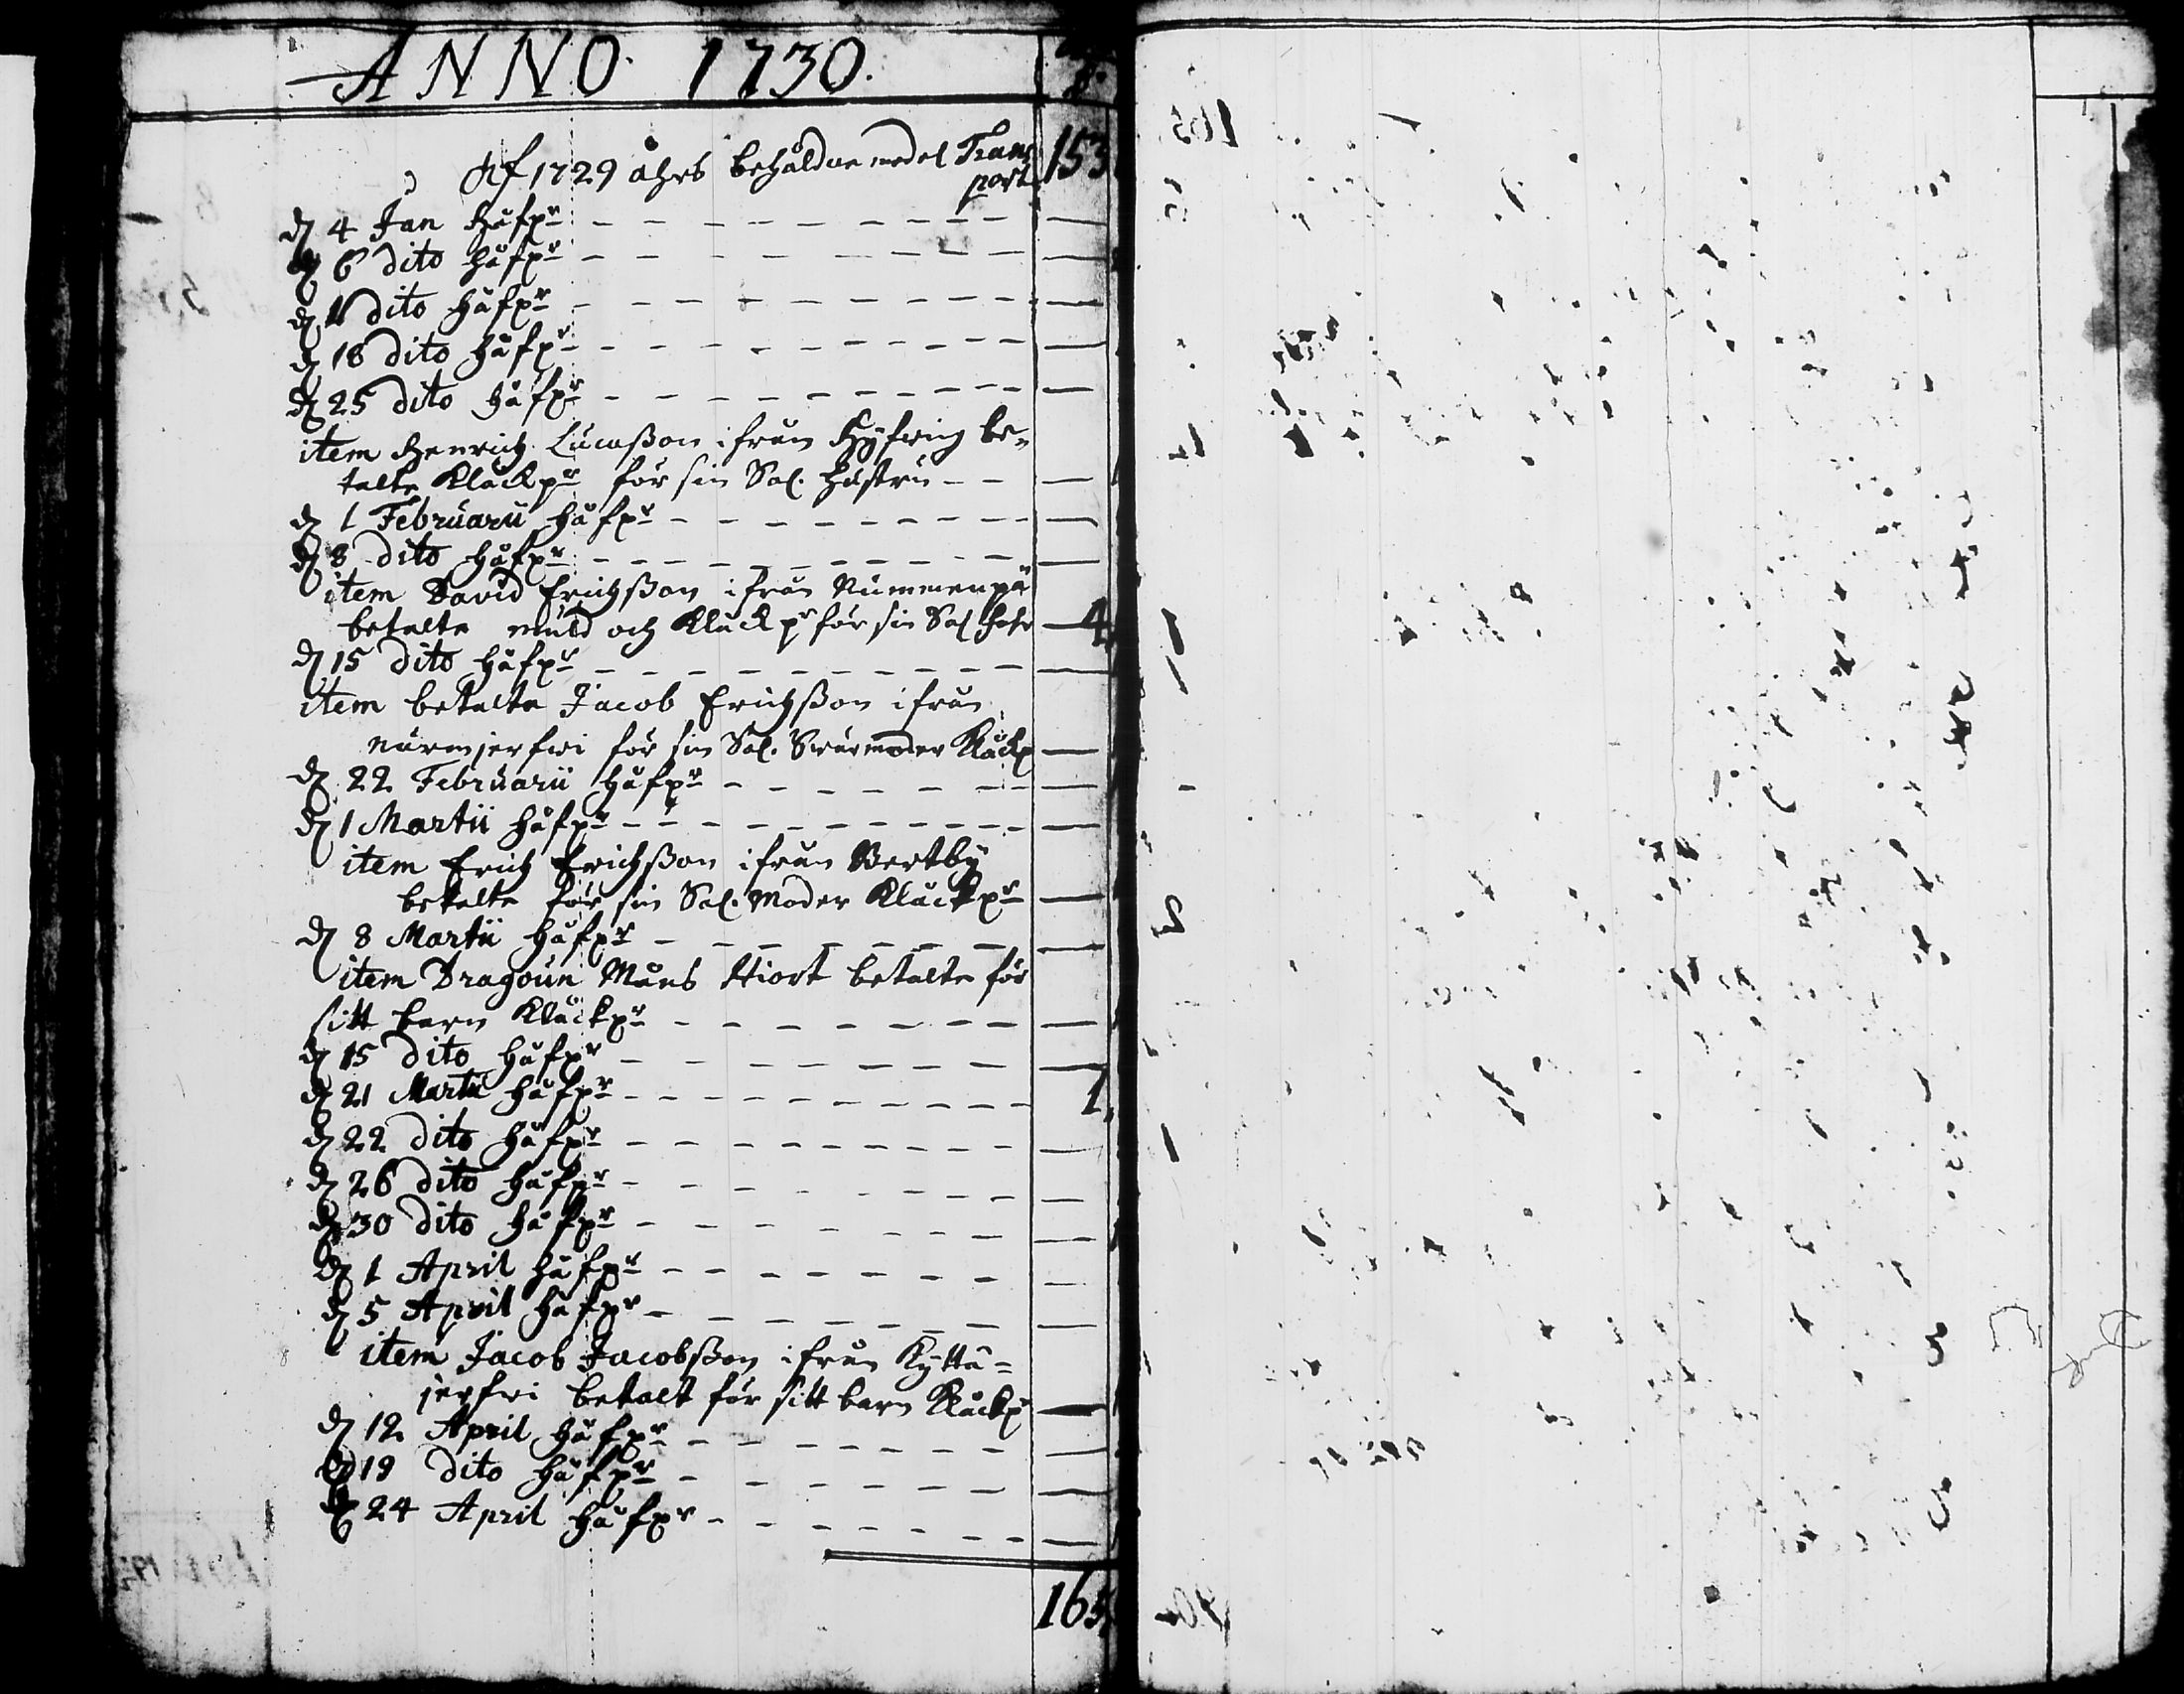 ANNO 1730.
Af 1729 åhrs behåldne medel Trans
port 153
d 4 Jan Håfpr
d 6 dito håfpr
d 11 dito håfpr
d 18 dito håfpr
d 25 dito håfpr
item Henrich Lucaßon ifrån be-
talte Klåckpr för sin Sal. hustru
d 1 Februarii håfpr
d 8 dito håfpr
item David Erichßon ifrån Nummenpä
betalte muld och Klåckpr för sin Sal 4
d 15 dito håfpr
item betalte Jacob Erichßon ifrån
nurmjerfwi för sin Sal. Swärmoder Klåckp
d 22 Februarii håfpr
d 1 Martii håfpr
item Erich Erichßon ifrån Vertby
betalte för sin Sal. Moder Klåckpr
d 8 Martii håfpr
item Dragoun Måns Hiort betalte för
sitt barn Klåckpr
d 15 dito håfpr
d 21 Martii håfpr 1
d 22 dito håfpr
d 26 dito håfpr
d 30 dito håfpr
d 1 April håfpr
d 5 April håfpr
item Jacob Jacobßon ifrån Kyttä=
jerfwi betalt för sitt barn Klåckp
d 12 April håfpr
d 19 dito håfpr
d 24 April håfpr
165